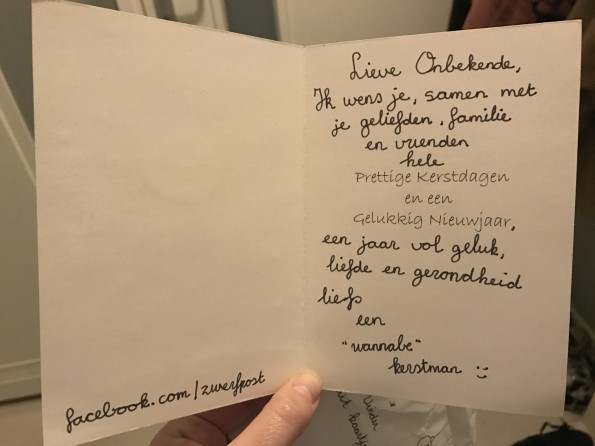 facebook.com/zwerfpost
Lieve Onbekende,
Ik wens je, samen met
je geliefden, familie
en vrienden
hele
Prettige Kerstdagen
en een
Gelukkig Nieuwjaar,
een jaar vol geluk,
liefde en gezondheid
liefs
een
"wannabe"
kerstman :)